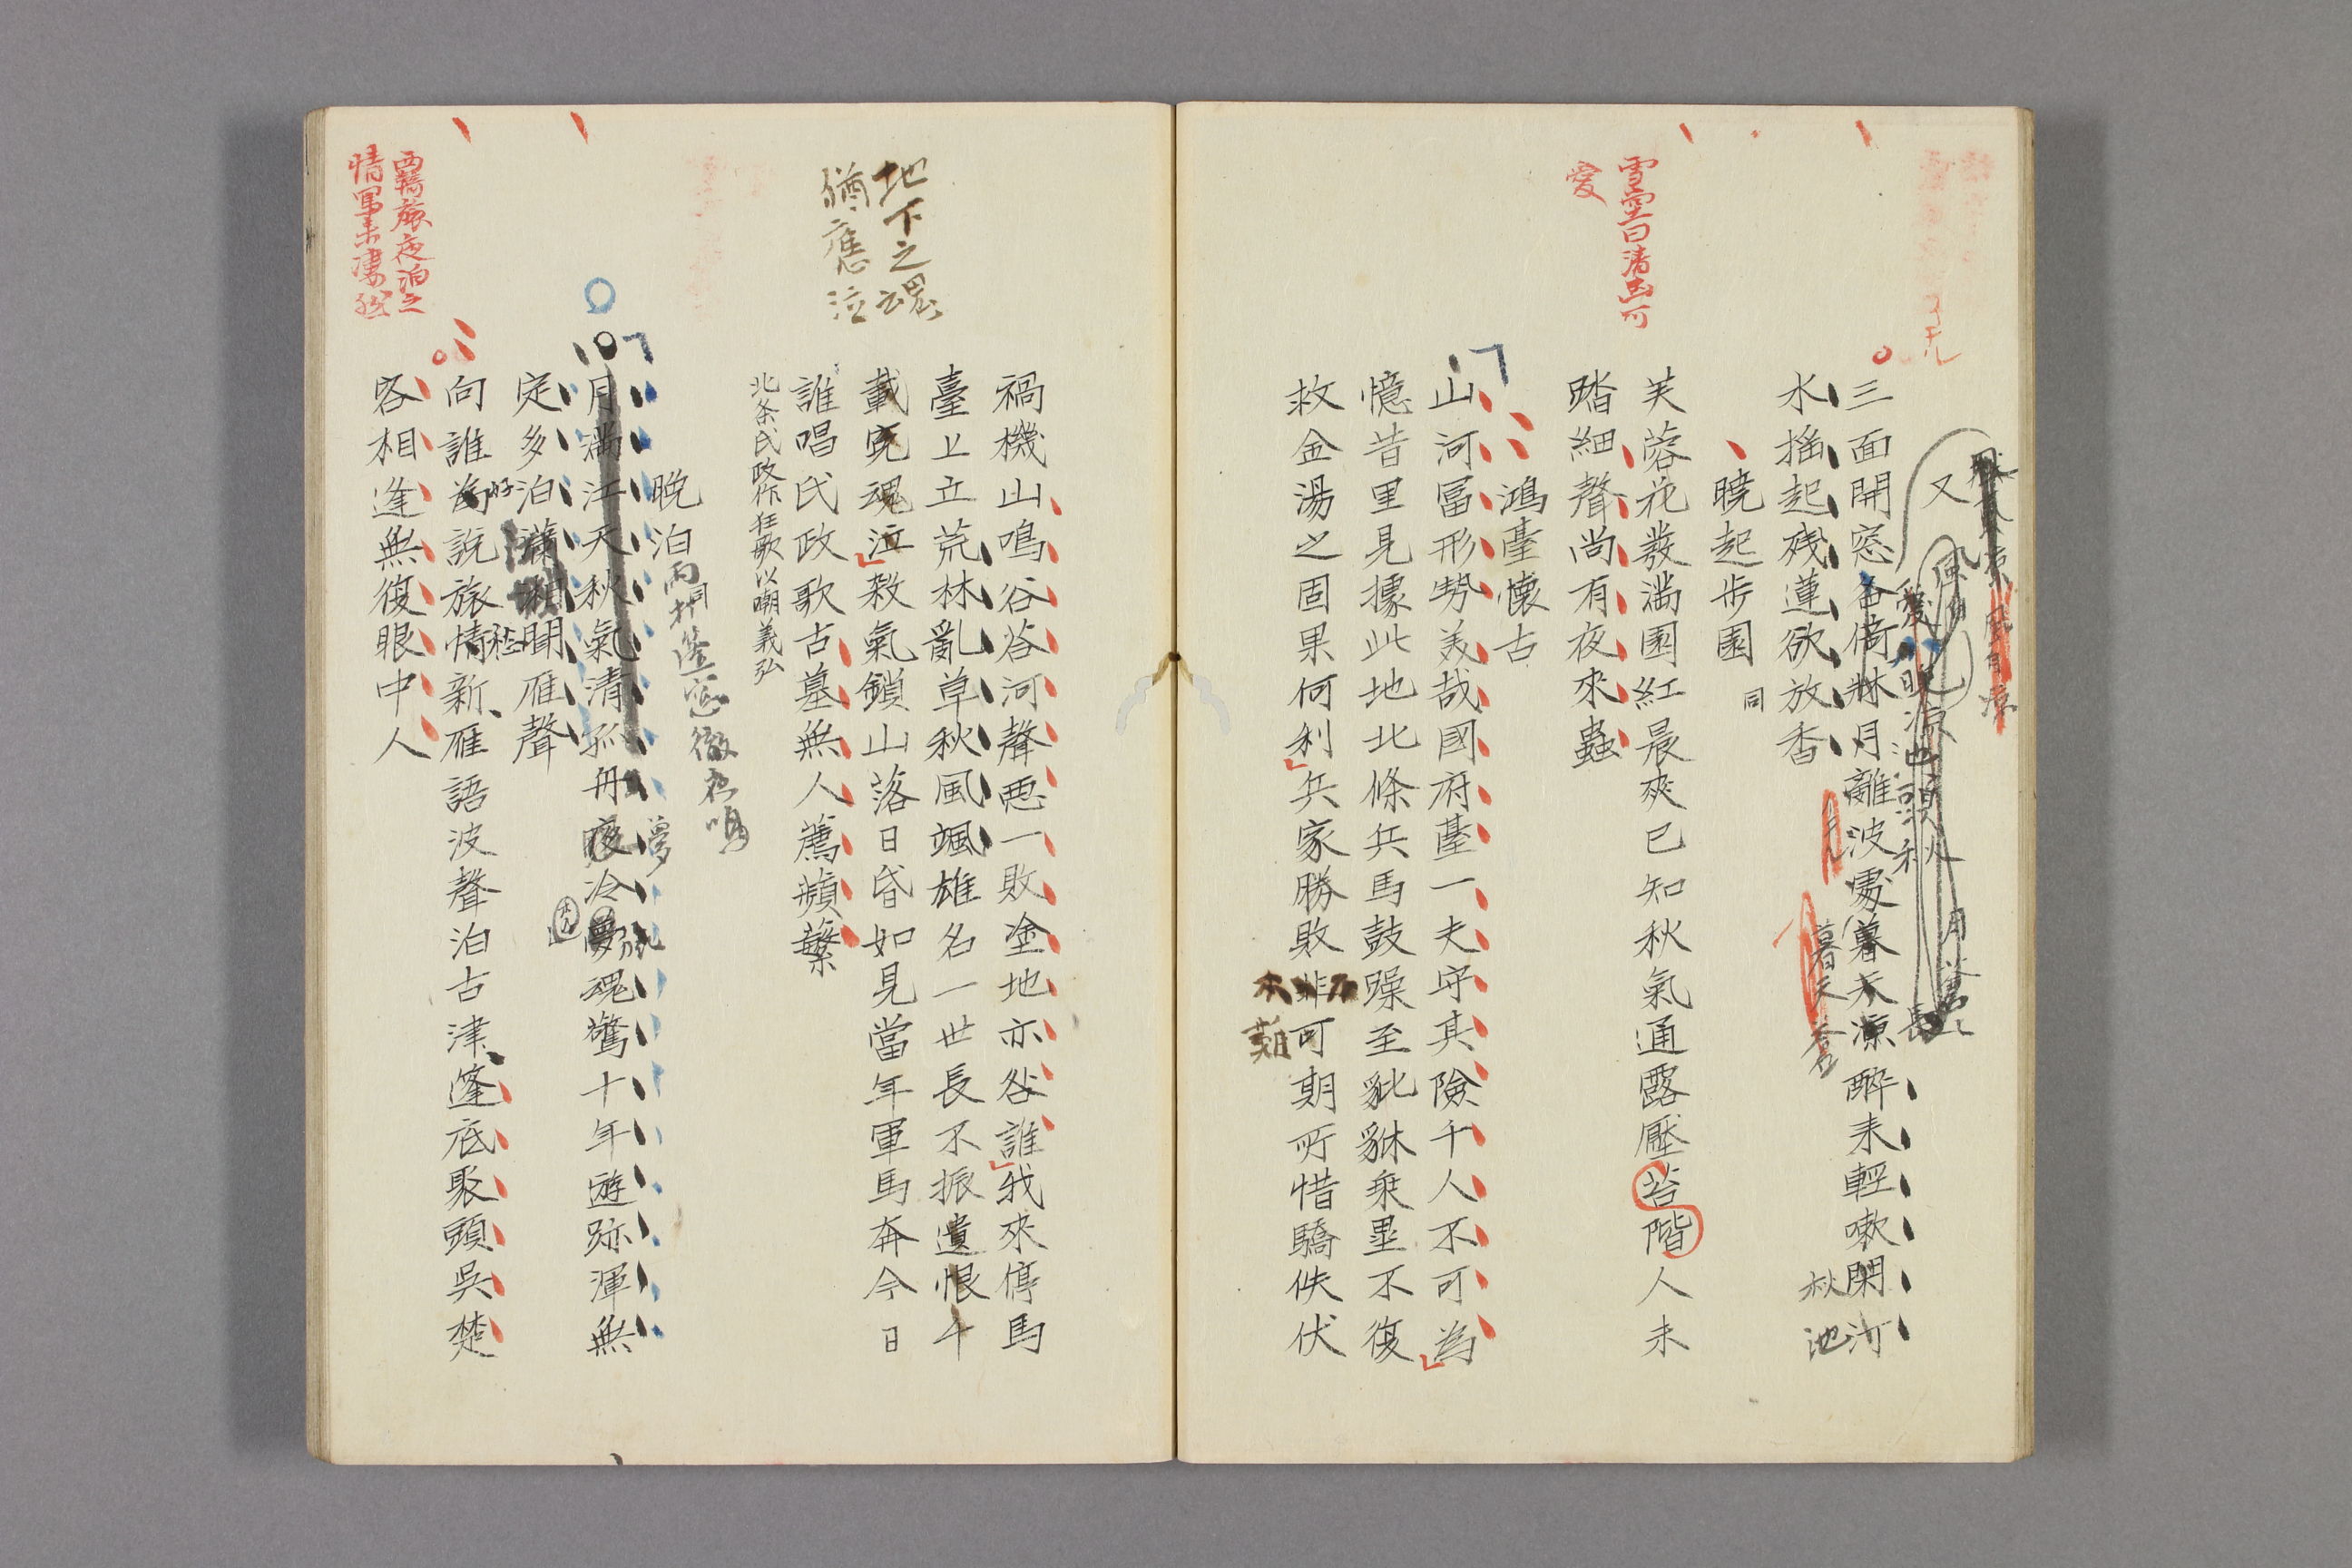 又
三面開窓
離波處暮天凉醉来輕嗽閑行
水搖起殘蓮欲放香
秋池
暁起歩園 同
雪堂曰清幽可
愛
芙蓉花發満園紅晨爽已知秋氣通露壓苔階人未
踏細聲尚有夜來蟲
鴻臺懐古
山河冨形勢美哉國府薹一夫守其險千人不可為
憶昔里見據此地北條兵馬鼓躁至豼貅乗壘不復
救金湯之固果何利兵家勝敗非可期所惜驕佚伏
禍機山鳴谷咨河聲悪一敗塗地亦咎誰我來停馬
臺上立荒林亂草秋風颯雄名一世長不振遺恨千
載寃魂泣殺氣鎖山落日昏如見當年軍馬奔今日
誰唱氏政歌古墓無人薦蘋蘩
北条氏政作狂歌以嘲義弘
地下之魂
猶應泣
晩泊 同
雨打篷窓徹夜鳴
月満江天秋氣清孤舟夜冷夢魂驚十年遊跡渾無
定多泊瀟湘聞雁聲
向誰為説旅情新雁語波聲泊古津篷底聚頭呉楚
客相逢無復眼中人
羇旅夜泊之
情写来凄然